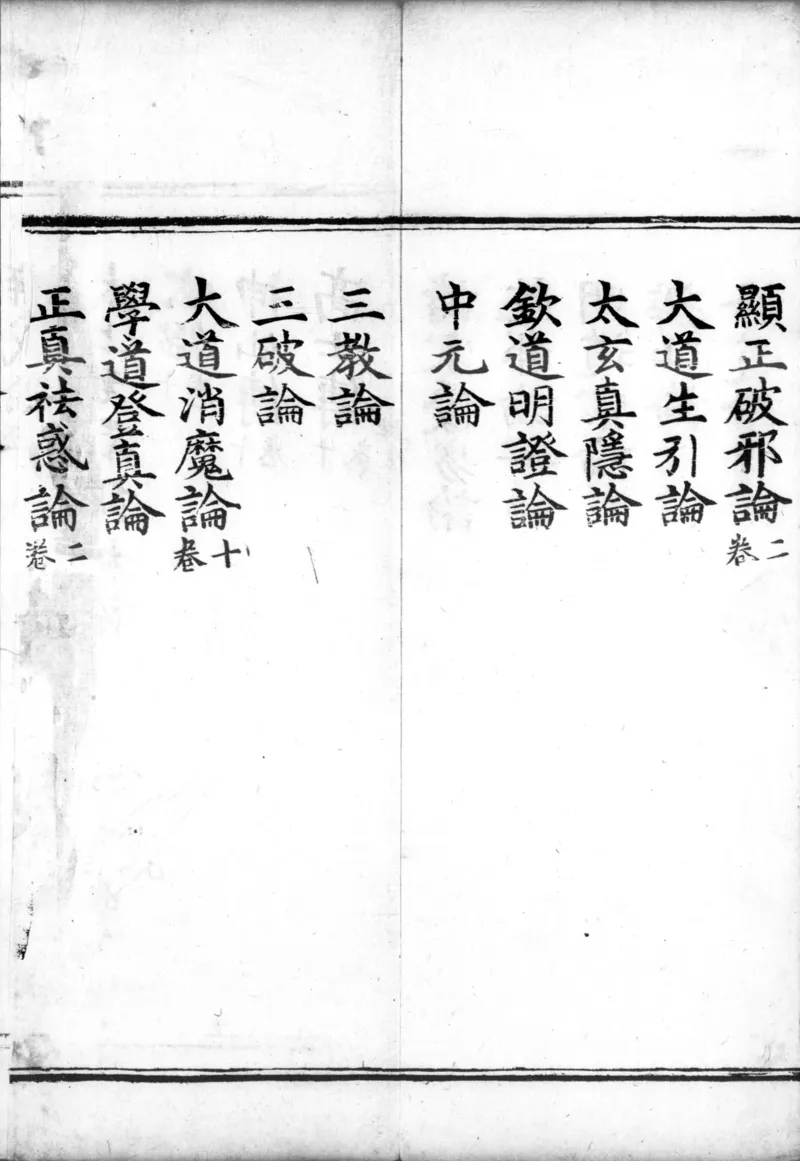 顯正破邪論二卷
大道生引論
太玄真隱論
欽道明證論
中元論
三教論
三破論
大道消魔論十卷
學道登真論
正真祛惑論二卷